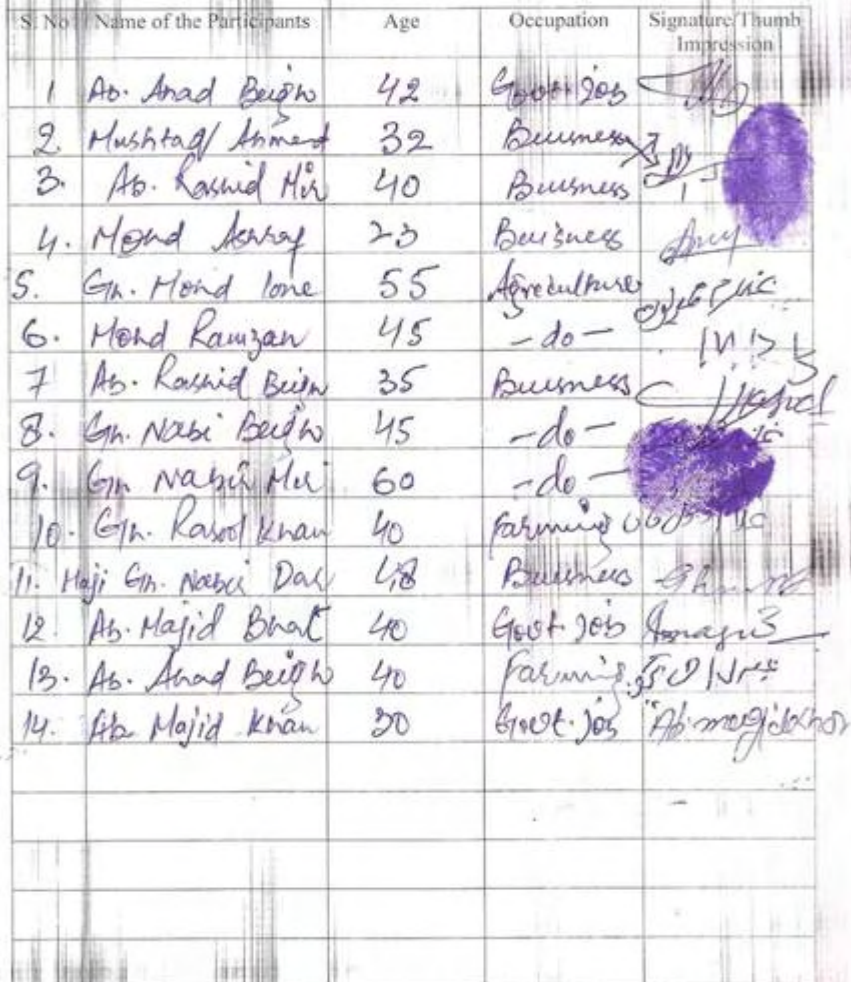 S. No Name of the Participants Age Occupation Signature/Thumb Impression
1 Ab. Ahad Beigh 42 Govt Job
2 Mushtaq Ahmed 32 Business
3. Ab. Rashid Mir 40 Business
4. Mohd Ashraf 23 Business
5. Gh. Mohd lone 55 Agreculture
6. Mohd Ramzan 45 - do -
7 Ab. Rashid Beigh 35 Business Rashid
8. Gh. Nabi Beigh 45 - do -
9. Gh Nabi Mir 60 - do -
10. Gh. Rasool Khan 40 Farming
11. Haji Gh. Nabi Dar 48 Business
12. Ab. Majid Bhat 40 Govt Job
13. Ab. Ahad Beigh 40 Farming
14. Ab Majid Khan 30 Govt. Job